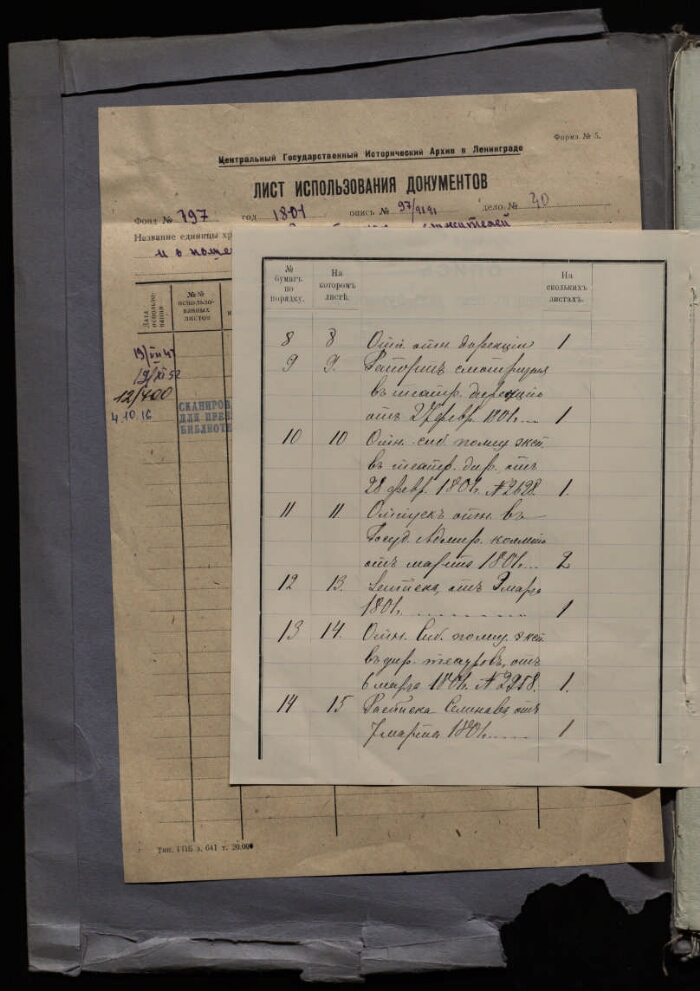 Форма № 5.
Центральный Государственный Исторический Архив в Ленинграде
ЛИСТ ИСПОЛЬЗОВАНИЯ ДОКУМЕНТОВ
Фонд № 797 год 1801 опись № 97/2121 дело № 40
Название единицы хр
служителей
и о поме
Дата использования
№№ использованных листов
19/VIII 47
19/XI 52
12/400
4.10.16
СКАНИРОВ
ДЛЯ ПРЕЗ
БИБЛИОТЕ
Тип. ГПБ з. 641 т. 20.000
№ бумагъ по порядку.
На которомъ листѣ.
На сколькихъ листахъ.
8 8 Отн. дирекціи 1
9 9. Рапортъ смотрителя
въ театр. дирекцію
отъ 27 февр. 1801. 1
10 10 Отн. спб. полиц. эксп.
въ театр. дир. отъ
28 февр. 1801. № 2628. 1.
11 11 Отпускъ отн. въ
Госуд. Адмир. коллегію
отъ марта 1801. 2
12 13. отъ 3 марта
1801. 1
13 14. Отн. Спб. полиц. эксп.
въ дир. театровъ, отъ
6 марта 1801. № 2958. 1.
14 15 Расписка Селикова отъ
7 марта 1801. 1